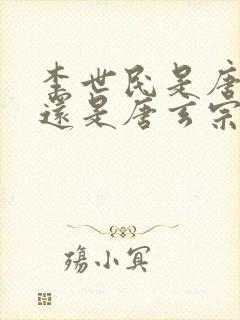 李世民是唐
还是唐玄宗
殇小冥